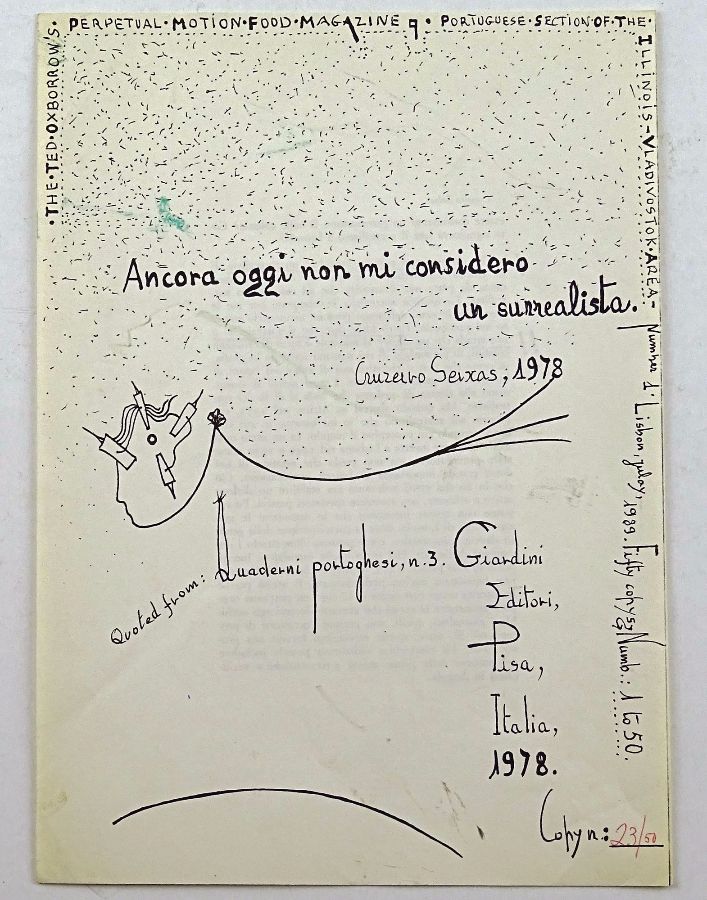 ·THE·TED·OXBORROW'S·
PERPETUAL·MOTION·FOOD·MAGAZINE 9· PORTUGUESE·SECTION·OF·THE·
ILLINOIS-VLADIVOSTOK·AREA-
Number 1' Lisbon, julay, 1989. Fifty copys, Numb.: 1 to 50.
Ancora oggi non mi considero
un surrealista.
Cruzeiro Seixas, 1978
Quoted from: Quaderni portoghesi, n.3. Giardini
Editori,
Pisa,
Italia,
1978.
Copy n.: 23/50